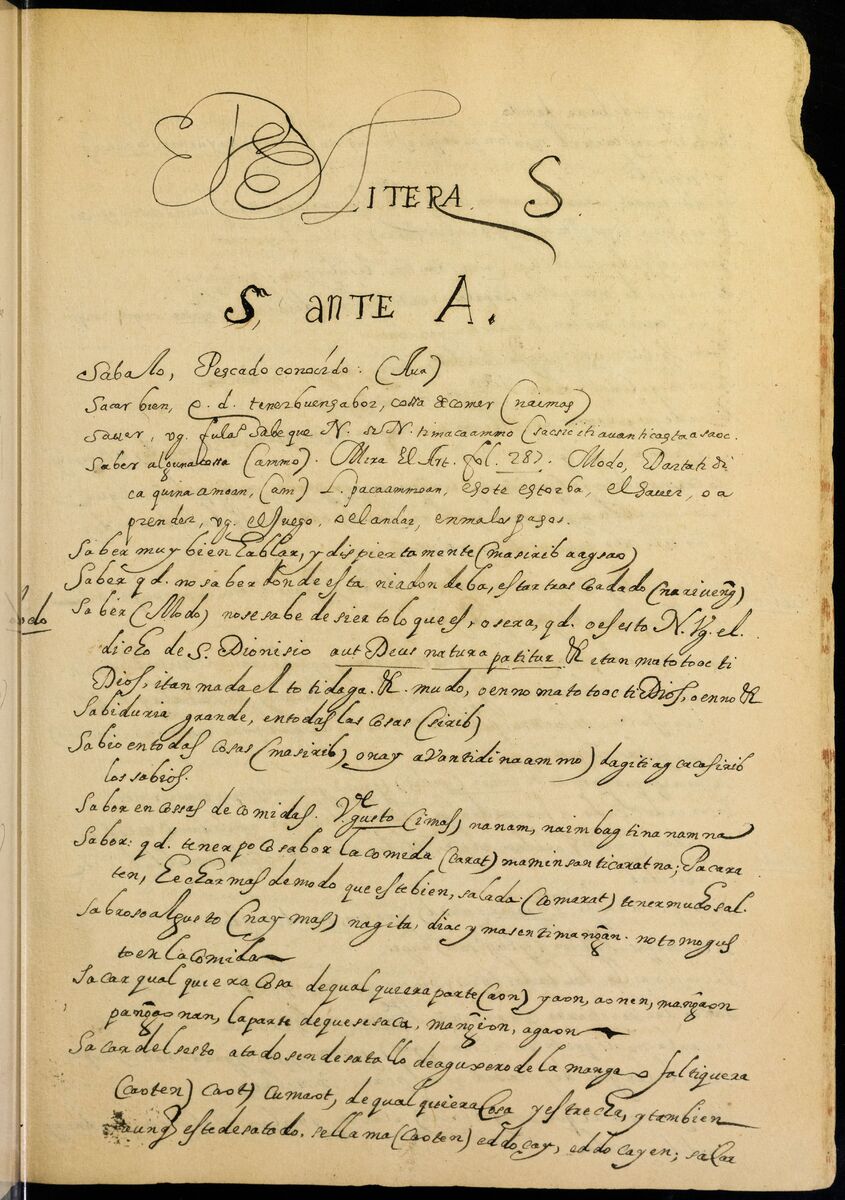 LITERA S.
S, ANTE A.
Sabalo, Pescado conocido: (Aua)
Sacar bien, q. d. tener buen sabor, cossa de comer (naimas)
Sauer, vg. fulaº Sabe que N. es N. timaca ammo (sacsiciti auanti cagta asaoc.
Saber alguna cossa (ammo). Mira El Art. fol. 287. Modo, Dastati di
ca quina amoan, (am) l. paca ammoan, esote estorba, el sauer, o a
prender, vg. el Juego, o el andar, en malos pasos.
Saber muy bien hablar, y dispiertamente (masirib aagsao)
Saber qd. no saber donde esta ni adonde ba, estar tras cordado (nariueng̃)
Saber (Modo) no se sabe de sierto lo que es, o sera, qd. o es esto N. Vg. el
dicho de S. Dionisio aut Deus natura patitur &c itan matotooc ti
Dios, itan mada el totidaga. &c. mudo, oenno matotooc ti Dios, oenno &c
Sabiduria grande, en todas las cosas (sirib)
Sabio en todas cosas (masirib) onay aVantidinaammo) dagitiag cacasirib
los sabios.
Sabor en cossas de comidas. Vde gusto (imas) nanam, naimbag tinanamna
Sabor: qd. tener poco sabor la comida (carat) maminsanti caratna; Pacara
ten, hechar mas de modo que este bien, salada. (Comarat) tener mucho sal.
Sabroso al gusto (naymas) nagita, diac ymasentimang̃an. no tomo gus
to en la comida
Sacar qual quiera cosa de qual quiera parte (aon) yaon, aonen, mang̃aon
pang̃aonan, la parte de que se saca, mang̃ion, agaon
Sacar del sesto atado sin desatallo de aguxero de la manga o faltiquera
(caoten) Caot) Cumaot, de qual quiera Cosa y estrecha, y tambien
aunq̃ este desatado. se llama (Caoten) eddocay, eddocayen; sacar